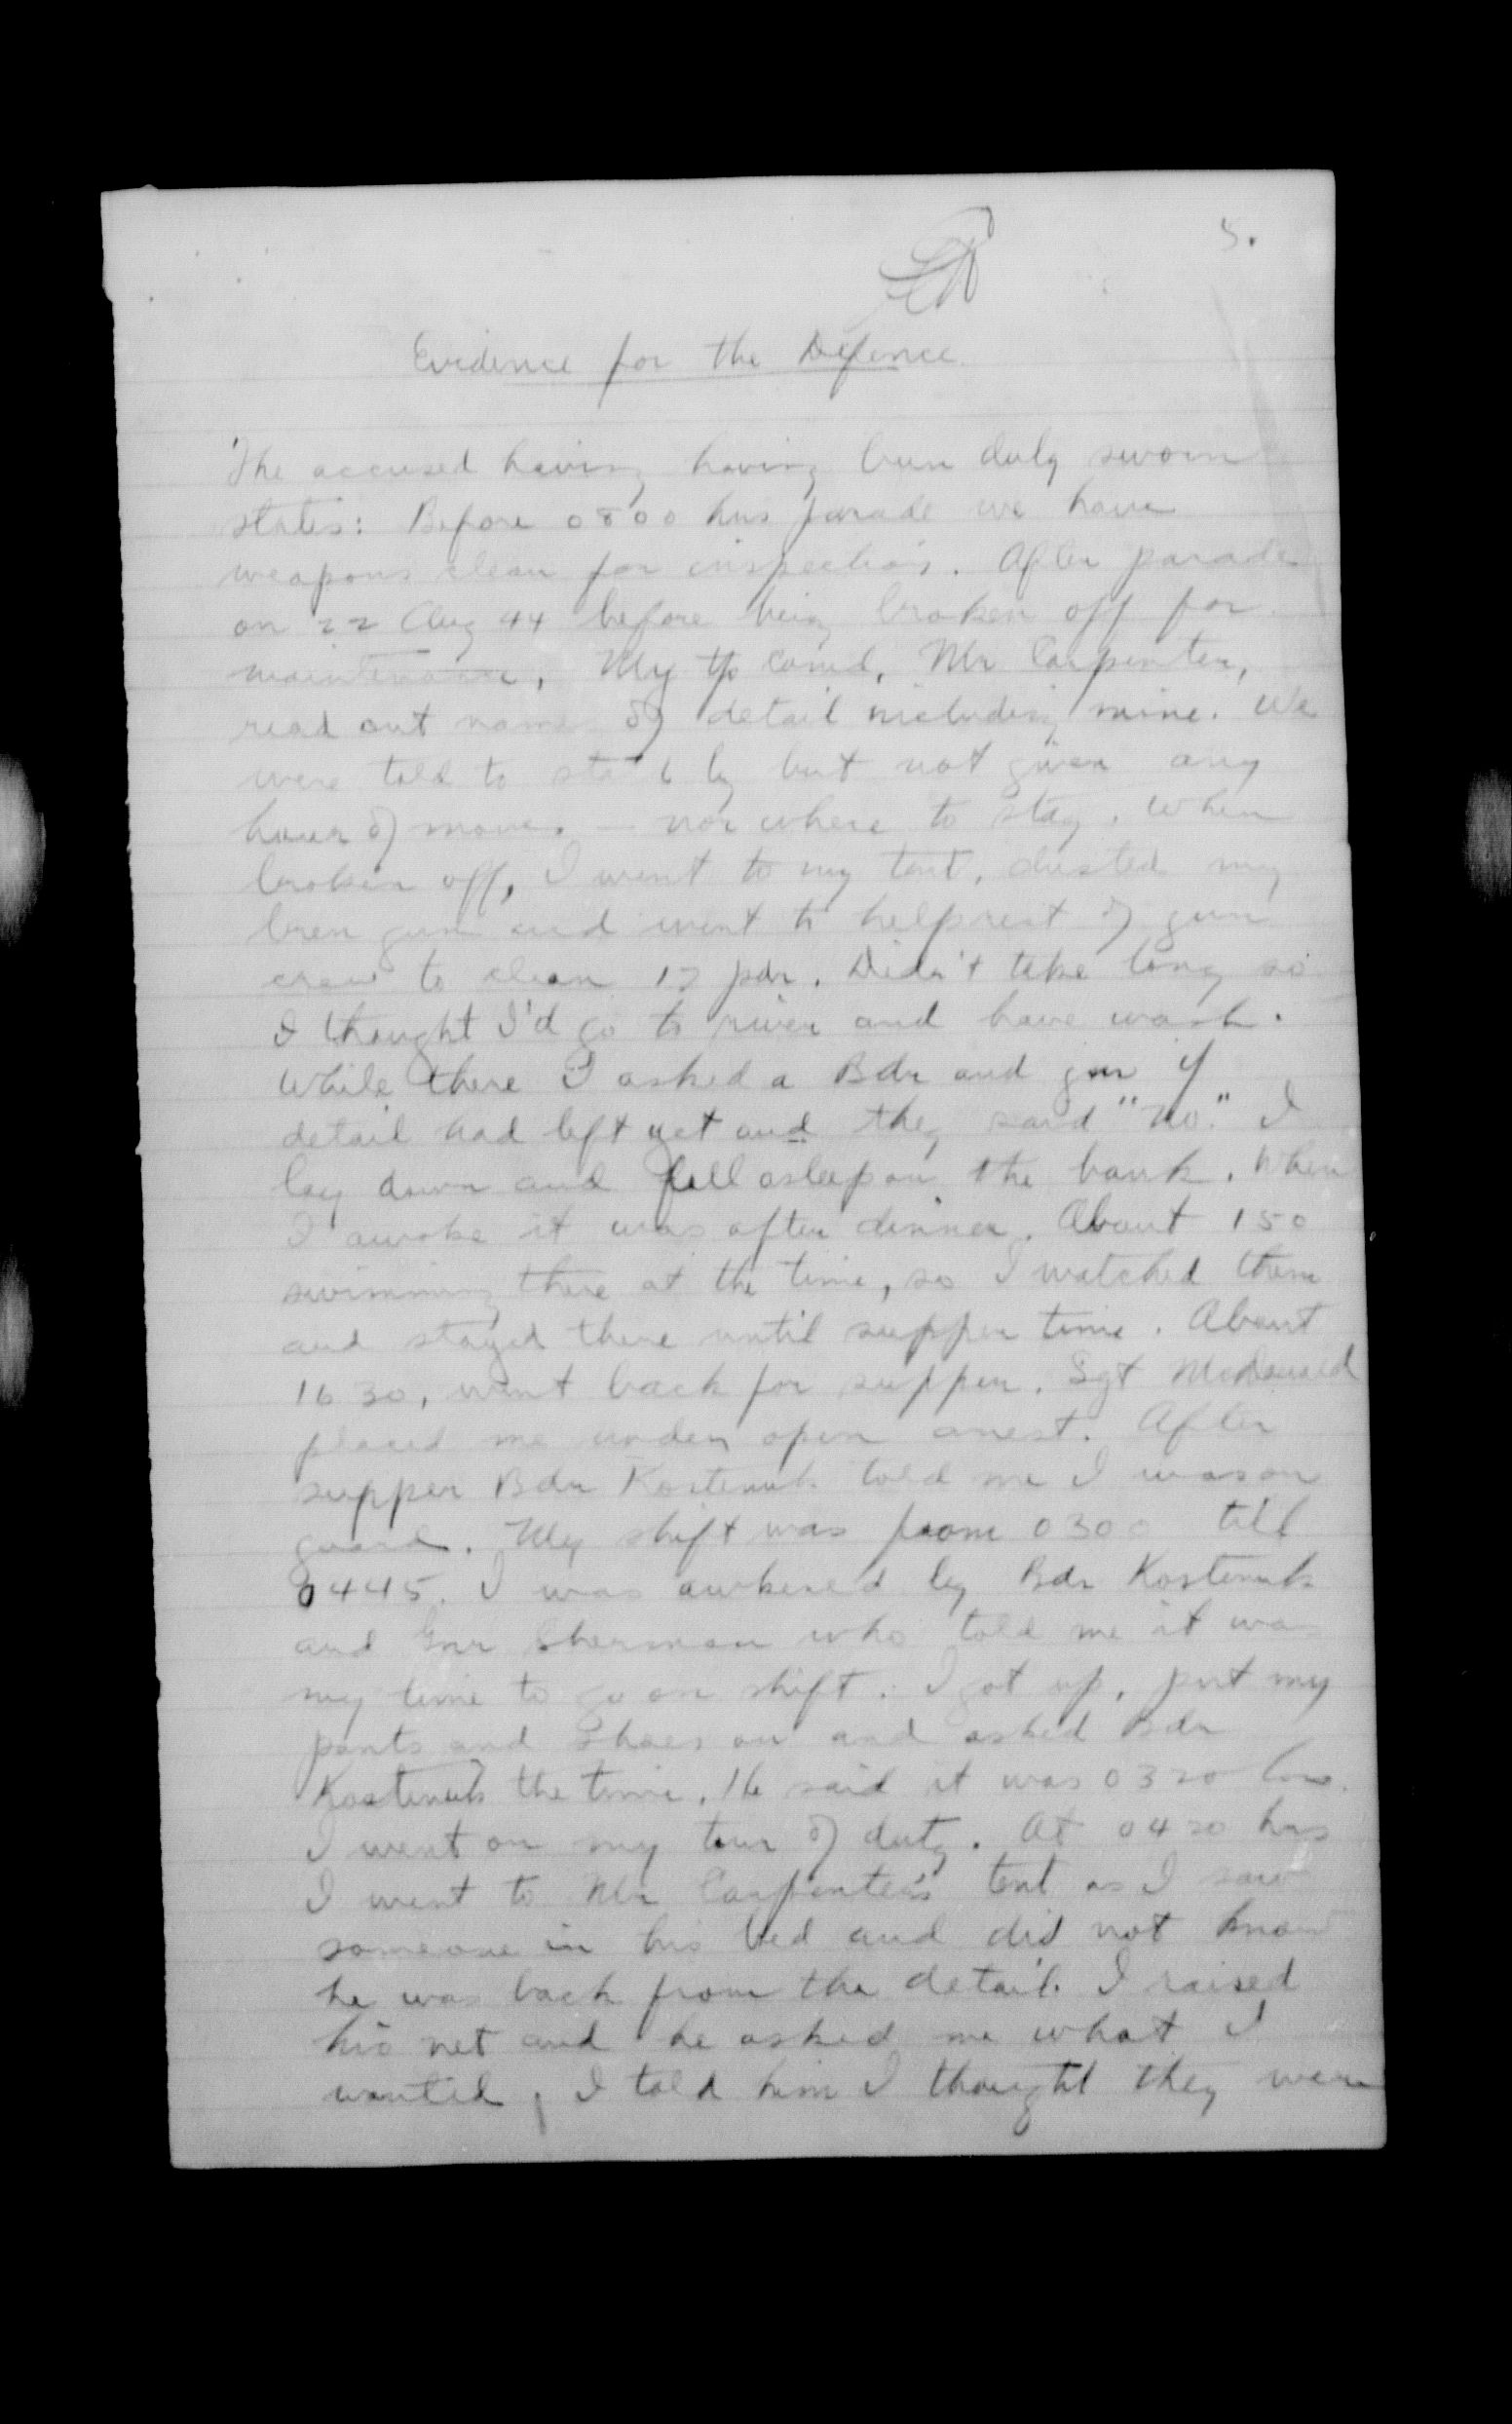 5.
Evidence for the Defence
The accused having having been duly sworn
states: Before 0800 hrs parade we have
weapons clean for inspection. After parade
on 22 Aug 44 before being broken off for
maintenance, My tp Comd, Mr Carpenter,
read out names of detail including mine. We
were told to stand by but not given any
hour of move. — nor where to stay. When
broken off, I went to my tent, dusted my
bren gun and went to help rest of gun
crew to clean 17 pdr. Didn't take long so
I thought I'd go to river and have wash.
While there I asked a Bdr and gnr if
detail had left yet and they said "No." I
lay down and fell asleep on the bank. When
I awoke it was after dinner. About 150
swimming there at the time, so I watched them
and stayed there until supper time. About
1630, went back for supper. Sgt McDonald
placed me under open arrest. After
supper Bdr Kostenuk told me I was on
guard. My shift was from 0300 till
0445. I was awkened by Bdr Kostenuk
and Gnr Sherman who told me it was
my time to go on shift. I got up, put my
pants and shoes on and asked Bdr
Kostenuk the time. He said it was 0320 hrs.
I went on my tour of duty. At 0420 hrs
I went to Mr Carpenter's tent as I saw
someone in his bed and did not know
he was back from the detail. I raised
his net and he asked me what I
wanted, I told him I thought they were